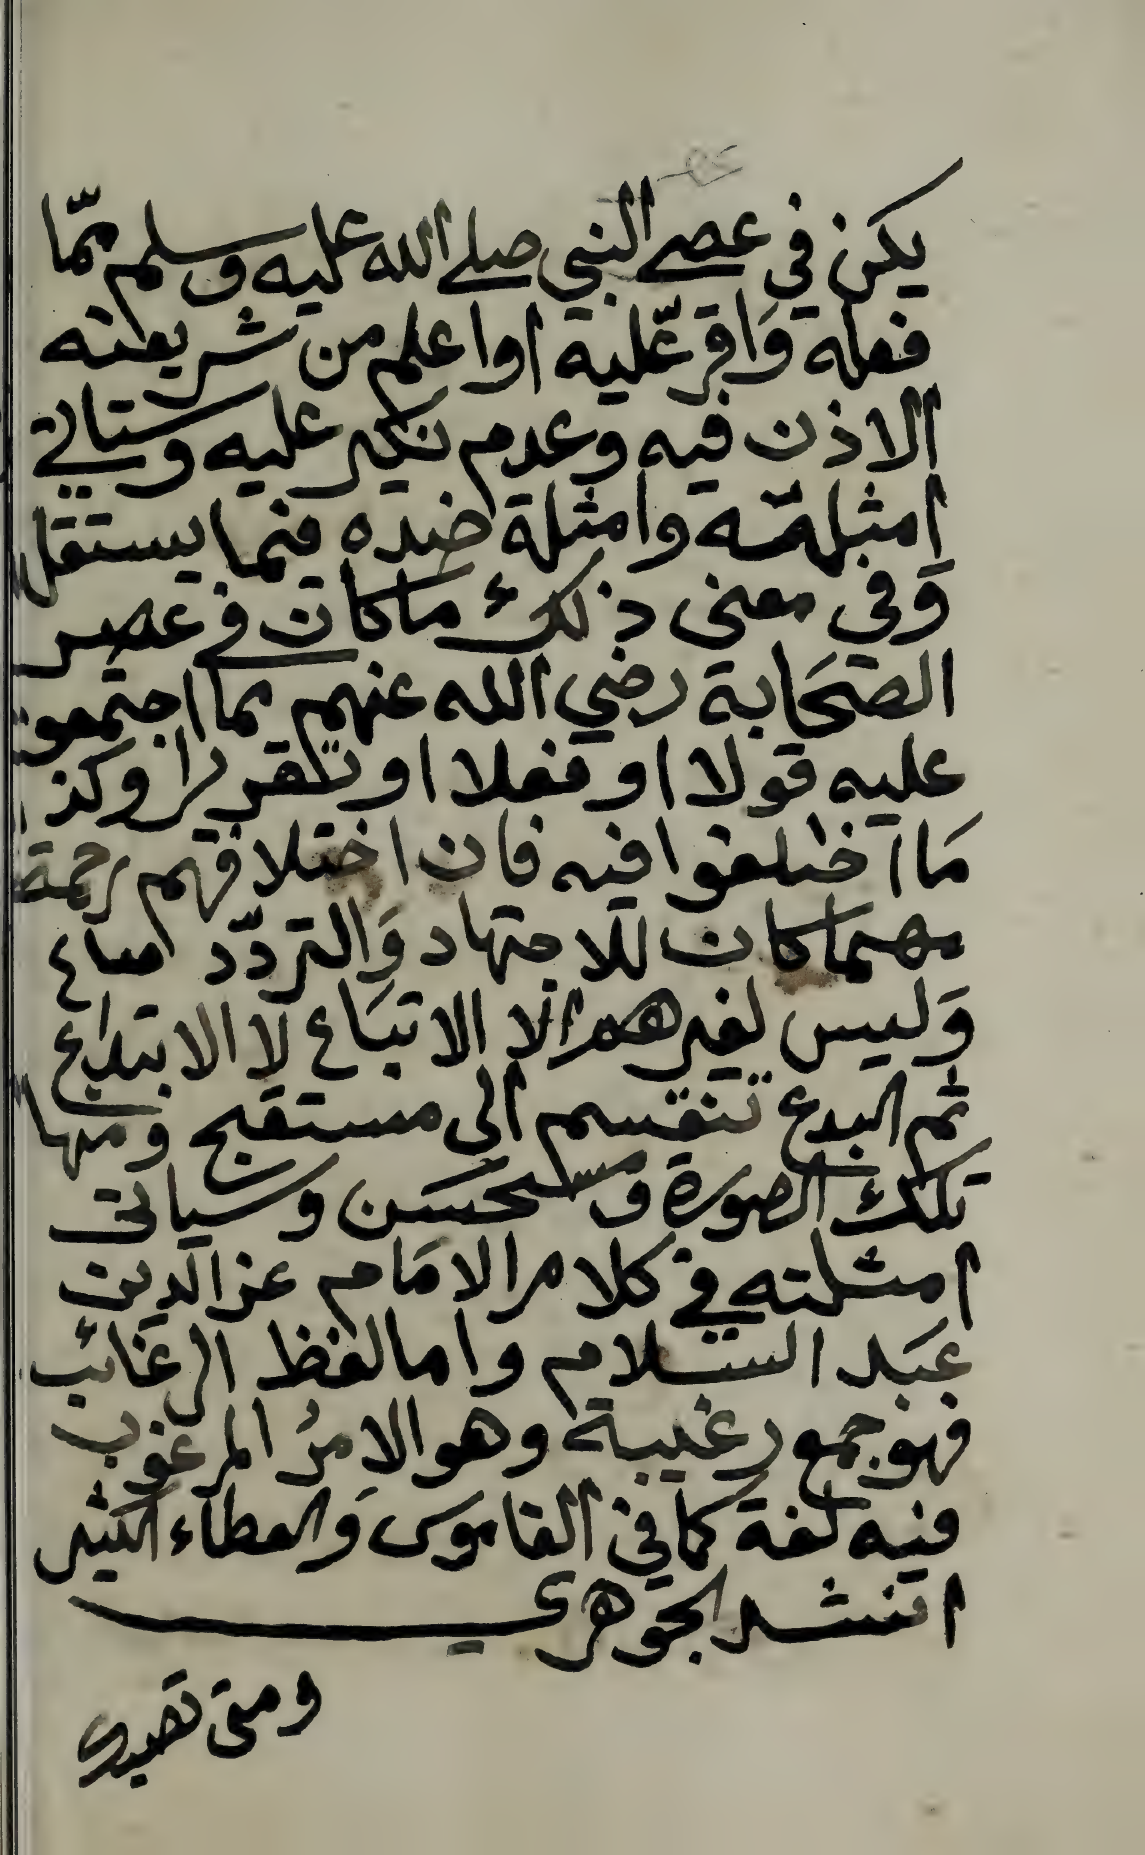 يكن في عصر النبي صلى الله عليه وسلم ممّا
فعله وَاقرّ عليه او اعلم من شريعته
الاذن فيه وعدم نكير عليه وستاتي
امثلته وامثلة ضده فيما يستقل
وَفي معنى ذلك ما كان في عصر
الصّحَابة رضي الله عنهم مما اجتمعوا
عليه قولا او فعلا او تقريرا وكذا
مَا اختلفوا فيه فان اختلافهم رحمة
مهما كان للاجتهاد وَالتردّد مساغ
وَليس لغيرهم الا الاتبَاع لا الابتداع
ثم البدع تنقسم الى مستقبح ومنها
تلك الصورة ومستحسَن وسياتى
امثلته في كلام الامَام عز الدين
عَبد السلام واما لفظ الرغائب
فهو جمع رغيبة وهو الامرُ المرغوب
فيه لغة كما في القاموس وَالعطاء الكثير
انشد الجوهري
ومتى تصبك